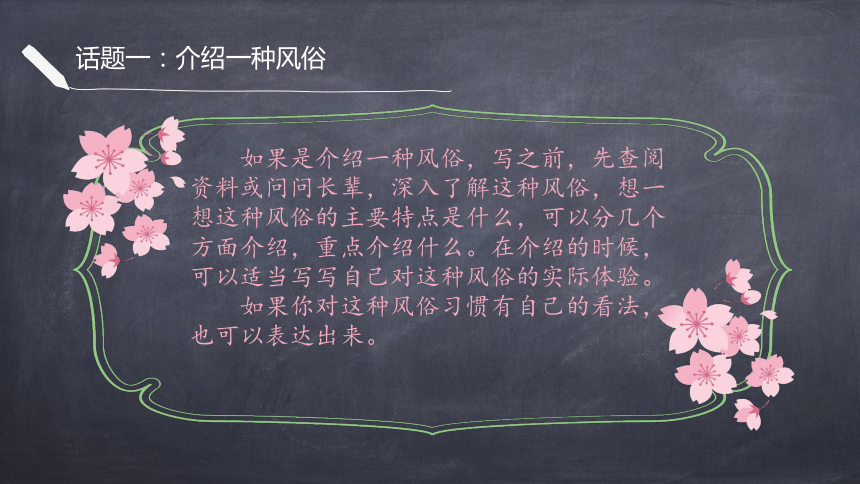 话题一：介绍一种风俗
如果是介绍一种风俗，写之前，先查阅
资料或问问长辈，深入了解这种风俗，想一
想这种风俗的主要特点是什么，可以分几个
方面介绍，重点介绍什么。在介绍的时候，
可以适当写写自己对这种风俗的实际体验。
如果你对这种风俗习惯有自己的看法，
也可以表达出来。